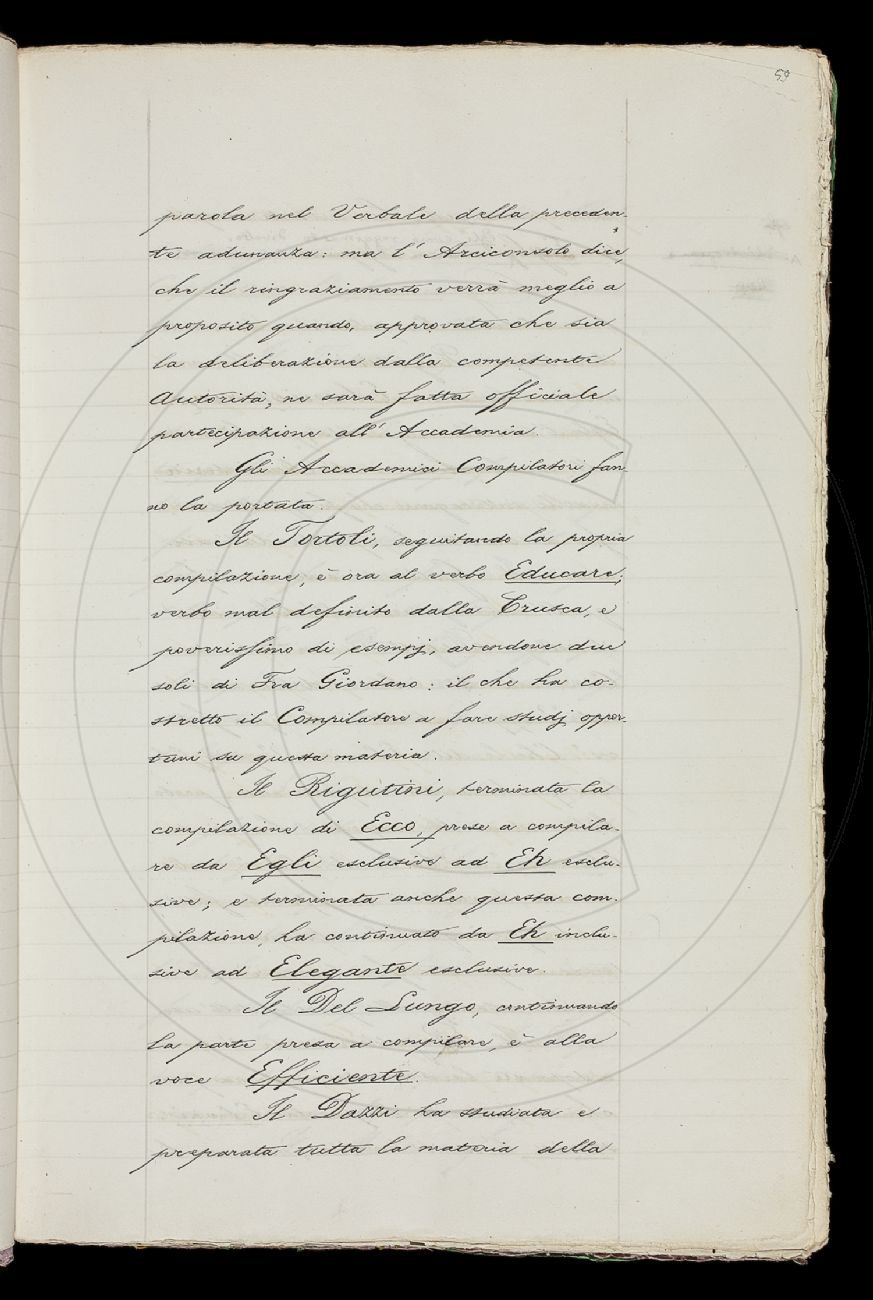 59
parola nel Verbale della preceden-
te adunanza: ma l'Arciconsolo dice,
che il ringraziamento verrà meglio a
proposito quando, approvata che sia
la deliberazione dalla competente
Autorità, ne sarà fatta officiale
partecipazione all'Accademia.
Gli Accademici Compilatori fan-
no la portata.
Il Tortoli, seguitando la propria
compilazione, è ora al verbo Educare;
verbo mal definito dalla Crusca, e
poverissimo di esempj, avendone due
soli di Fra Giordano: il che ha co-
stretto il Compilatore a fare studj oppor-
tuni su questa materia.
Il Rigutini, terminata la
compilazione di Ecco, prese a compila-
re da Egli esclusive ad Eh esclu-
sive; e terminata anche questa com-
pilazione, ha continuato da Eh inclu-
sive ad Elegante esclusive.
Il Del Lungo, continuando
la parte presa a compilare, è alla
voce Efficiente.
Il Dazzi ha studiata e
preparata tutta la materia della